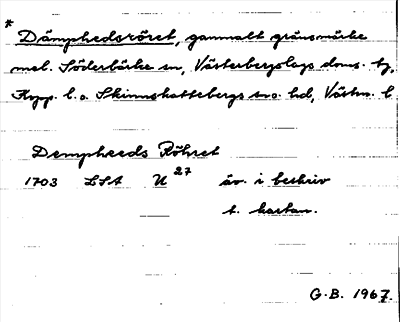 * Dämphedsröret, gammalt gränsmärke
mel. Söderbärke sn, Västerbergslags doms. tg,
Kopp. l. o. Skinnskattebergs sn o. hd, Västm. l
Dempheeds Röhret
1703 LSA U 27 äv. i beskriv
t. kartan.
G.B. 1967.